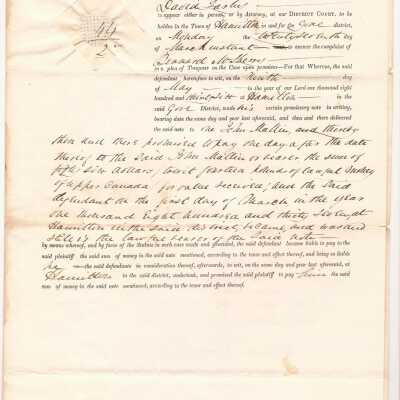 David
to appear either in person, or by Attorney, at our DISTRICT COURT, to be
holden in the Town of Hamilton in and for the Gore district,
on Monday the day
of March instant to answer the complaint of
in a plea of Trespass on the Case upon promises—For that Whereas, the said
defendant heretofore to wit, on the Ninth day
of May in the year of our Lord one thousand eight
hundred and at Hamilton in the
said Gore District, made his certain promissory note in writing,
bearing date the same day and year last aforesaid, and then and there delivered
the said note to one John and thereby
then and there promised to pay one day after the date
thereof to the said John or bearer the sum of
six dollars, pounds of lawful money
of Upper Canada for value received, and the said
defendant on the first day of March in the year
one thousand Eight hundred and thirty at
Hamilton in the said district, became, and was and
still is the lawful bearer of the said note
by means whereof, and by force of the Statute in such case made and provided, the said defendant became liable to pay to the
said plaintiff the said sum of money in the said note mentioned, according to the tenor and effect thereof, and being so liable
he the said defendant in consideration thereof, afterwards, to wit, on the same day and year last aforesaid, at
Hamilton in the said district, undertook, and promised the said plaintiff to pay him the said
sum of money in the said note mentioned, according to the tenor and effect thereof.